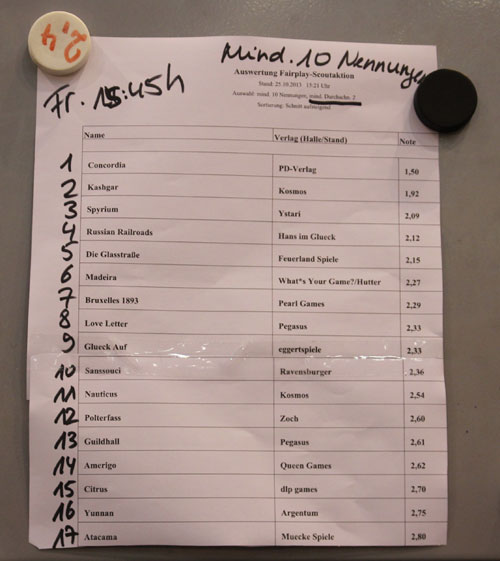 2,4
Mind. 10 Nennungen
Fr. 15:45h
Auswertung Fairplay-Scoutaktion
Stand: 25.10.2013 15:21 Uhr
Auswahl: mind. 10 Nennungen, mind. Durchschn. 2
Sortierung: Schnitt aufsteigend
Name Verlag (Halle/Stand) Note
1 Concordia PD-Verlag 1,50
2 Kashgar Kosmos 1,92
3 Spyrium Ystari 2,09
4 Russian Railroads Hans im Glueck 2,12
5 Die Glasstraße Feuerland Spiele 2,15
6 Madeira What*s Your Game?/Hutter 2,27
7 Bruxelles 1893 Pearl Games 2,29
8 Love Letter Pegasus 2,33
9 Glueck Auf eggertspiele 2,33
10 Sanssouci Ravensburger 2,36
11 Nauticus Kosmos 2,54
12 Polterfass Zoch 2,60
13 Guildhall Pegasus 2,61
14 Amerigo Queen Games 2,62
15 Citrus dlp games 2,70
16 Yunnan Argentum 2,75
17 Atacama Muecke Spiele 2,80